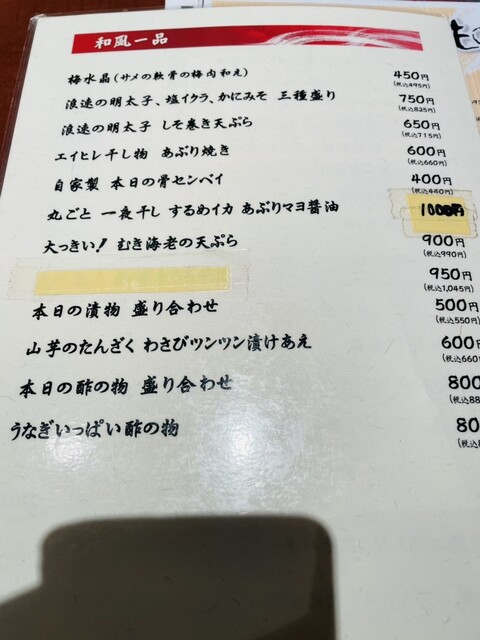 和風一品
梅水晶(サメの軟骨の梅肉和え) 450円
(税込495円)
浪速の明太子、塩イクラ、かにみそ 三種盛り 750円
(税込825円)
浪速の明太子 しそ巻き天ぷら 650円
(税込715円)
エイヒレ干し物 あぶり焼き 600円
(税込660円)
自家製 本日の骨センベイ 400円
(税込440円)
丸ごと 一夜干し するめイカ あぶりマヨ醤油 1000円
大っきい! むき海老の天ぷら 900円
(税込990円)
950円
(税込1,045円)
本日の漬物 盛り合わせ 500円
(税込550円)
山芋のたんざく わさびツンツン漬けあえ 600円
(税込660
本日の酢の物 盛り合わせ 800
(税込88
うなぎいっぱい酢の物 80
(税込